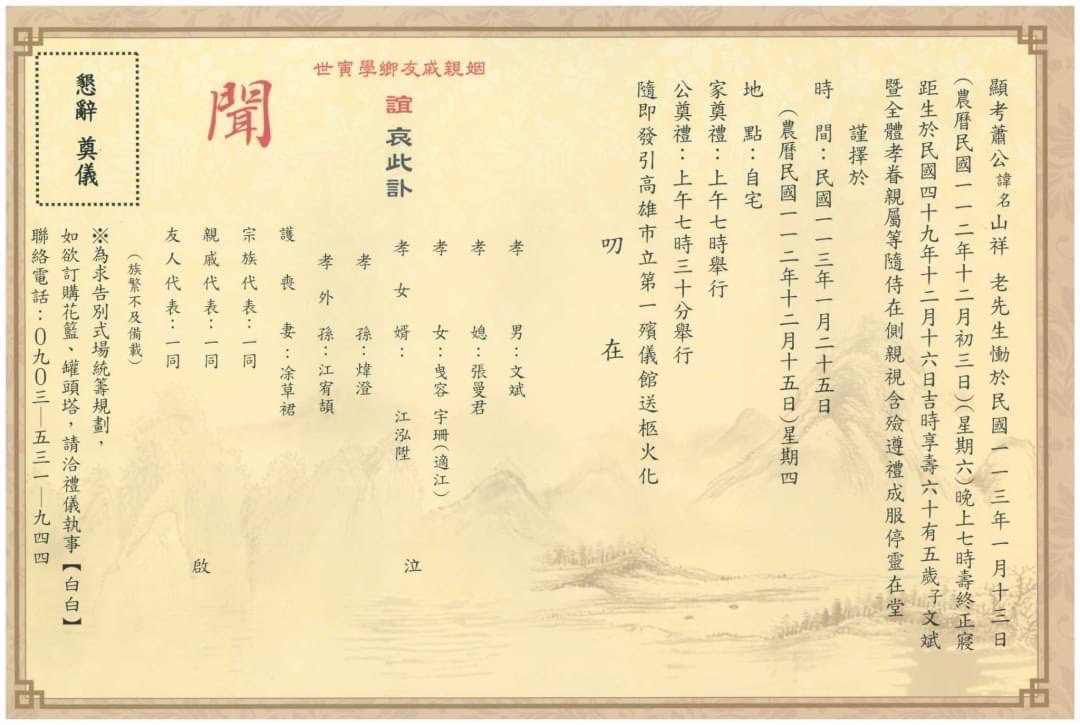 顯考蕭公諱名山祥 老先生慟於民國一一三年一月十三日
(農曆民國一一二年十二月初三日)(星期六)晚上七時壽終正寢
距生於民國四十九年十二月十六日吉時享壽六十有五歲子文斌
暨全體孝眷親屬等隨侍在側親視含殮遵禮成服停靈在堂
謹擇於
時 間:民國一一三年一月二十五日
(農曆民國一一二年十二月十五日)星期四
地 點:自宅
家奠禮:上午七時舉行
公奠禮:上午七時三十分舉行
隨即發引高雄市立第一殯儀館送柩火化
叨 在
姻親戚友鄉學寅世
誼 哀此訃
聞
孝 男:文斌
孝 媳:張曼君
孝 女:曳容 宇珊(適江)
孝 女 婿: 江泓陞
孝 孫:煒澄
孝 外 孫:江宥頡
護 喪 妻:凃草裙
泣
宗族代表:一同
親戚代表:一同
友人代表:一同
啟
(族繁不及備載)
懇辭 奠儀
※為求告別式場統籌規劃,
如欲訂購花籃、罐頭塔,請洽禮儀執事【白白】
聯絡電話:0九0三—五三一—九四四